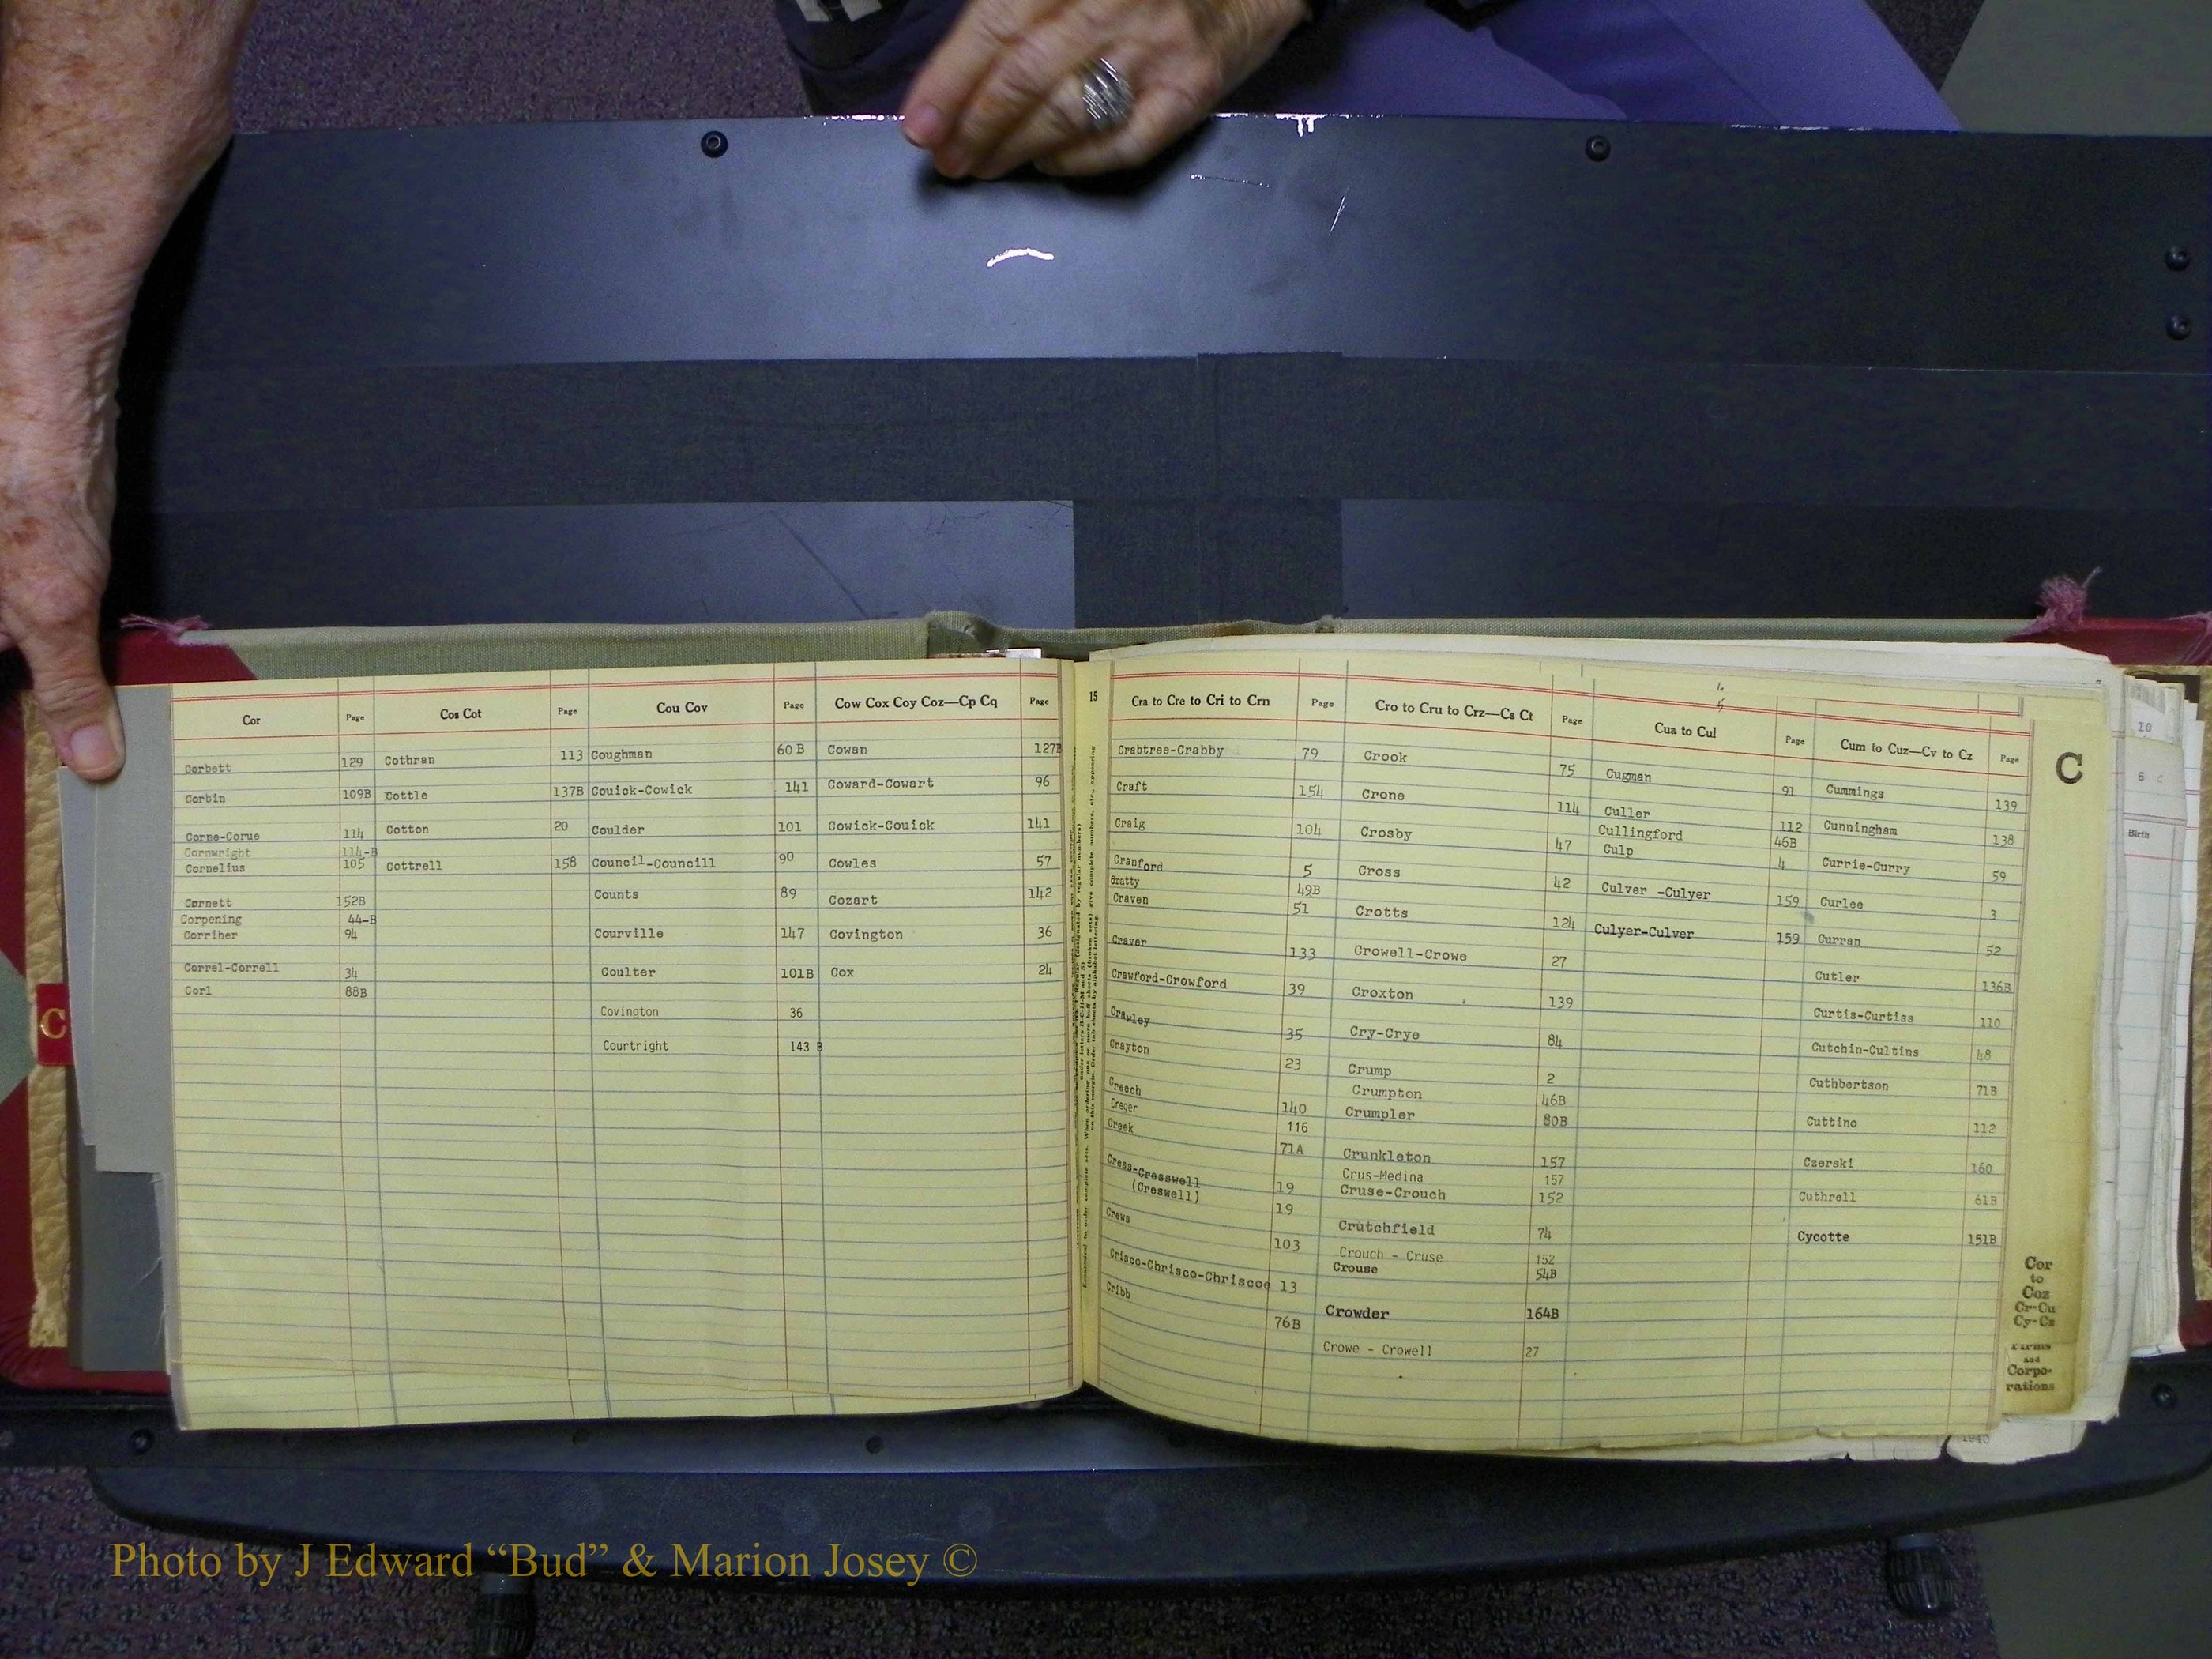 Cor Page
Corbett 129
Corbin 109B
Corne-Corue 114
Cornwright 114-B
Cornelius 105
Cornett 152B
Corpening 44-B
Corriher 94
Correl-Correll 34
Corl 88B
Cos Cot Page
Cothran 113
Cottle 137B
Cotton 20
Cottrell 158
Cou Cov Page
Coughman 60 B
Couick-Cowick 141
Coulder 101
Council-Councill 90
Counts 89
Courville 147
Coulter 101B
Covington 36
Courtright 143 B
Cow Cox Coy Coz—Cp Cq Page
Cowan 127B
Coward-Cowart 96
Cowick-Couick 141
Cowles 57
Cozart 142
Covington 36
Cox 24
15
Cra to Cre to Cri to Crn Page
Crabtree-Crabby 79
Craft 154
Craig 104
Cranford 5
Bratty 49B
Craven 51
Craver 133
Crawford-Crowford 39
Crawley 35
Crayton 23
Creech 140
Creger 116
Creek 71A
Cress-Cresswell 19
(Creswell) 19
Crews 103
Crisco-Chrisco-Chriscoe 13
Cribb 76B
Cro to Cru to Crz—Cs Ct Page
Crook 75
Crone 114
Crosby 47
Cross 42
Crotts 124
Crowell-Crowe 27
Croxton 139
Cry-Crye 84
Crump 2
Crumpton 46B
Crumpler 80B
Crunkleton 157
Crus-Medina 157
Cruse-Crouch 152
Crutchfield 74
Crouch - Cruse 152
Crouse 54B
Crowder 164B
Crowe - Crowell 27
Cua to Cul Page
Cugman 91
Culler 112
Cullingford 46B
Culp 4
Culver -Culyer 159
Culyer-Culver 159
Cum to Cuz—Cv to Cz Page
Cummings 139
Cunningham 138
Currie-Curry 59
Curlee 3
Curran 52
Cutler 136B
Curtis-Curtiss 110
Cutchin-Cultins 48
Cuthbertson 71B
Cuttino 112
Czerski 160
Cuthrell 61B
Cycotte 151B
C
Cor
to
Coz
Cr-Cu
Cy-Cz
and
Corpo-
rations
10
6 C
Birth
1940
C
Photo by J Edward “Bud” & Marion Josey ©